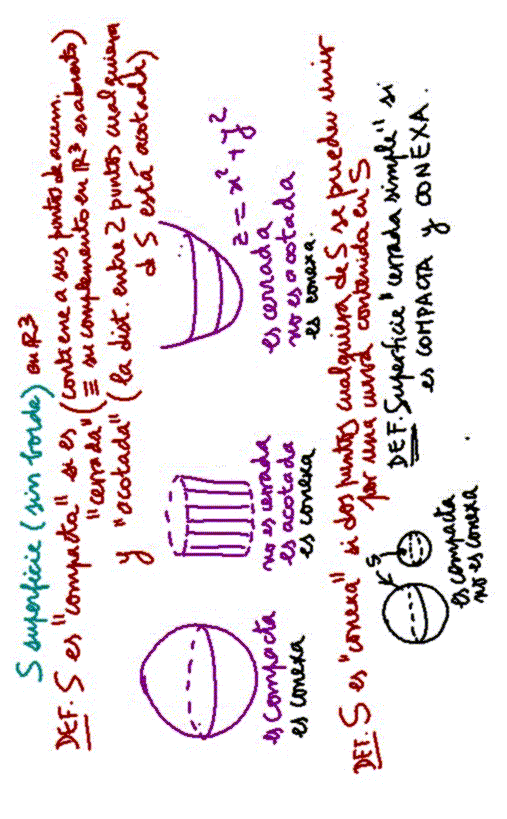 S superficie (sin borde) en R³
DEF. S es "compacta" si es
"cerrada" (contiene a sus puntos de acum.
≡ su complemento en R³ es abierto)
y "acotada" (la dist. entre 2 puntos cualquiera
de S está acotada)
es compacta
es conexa
no es cerrada
es acotada
es conexa
z = x² + y²
es cerrada
no es acotada
es conexa.
DEF. S es "conexa" si dos puntos cualquiera de S se pueden unir
por una curva contenida en S
S
es compacta
no es conexa
DEF. Superficie "cerrada simple" si
es COMPACTA y CONEXA.